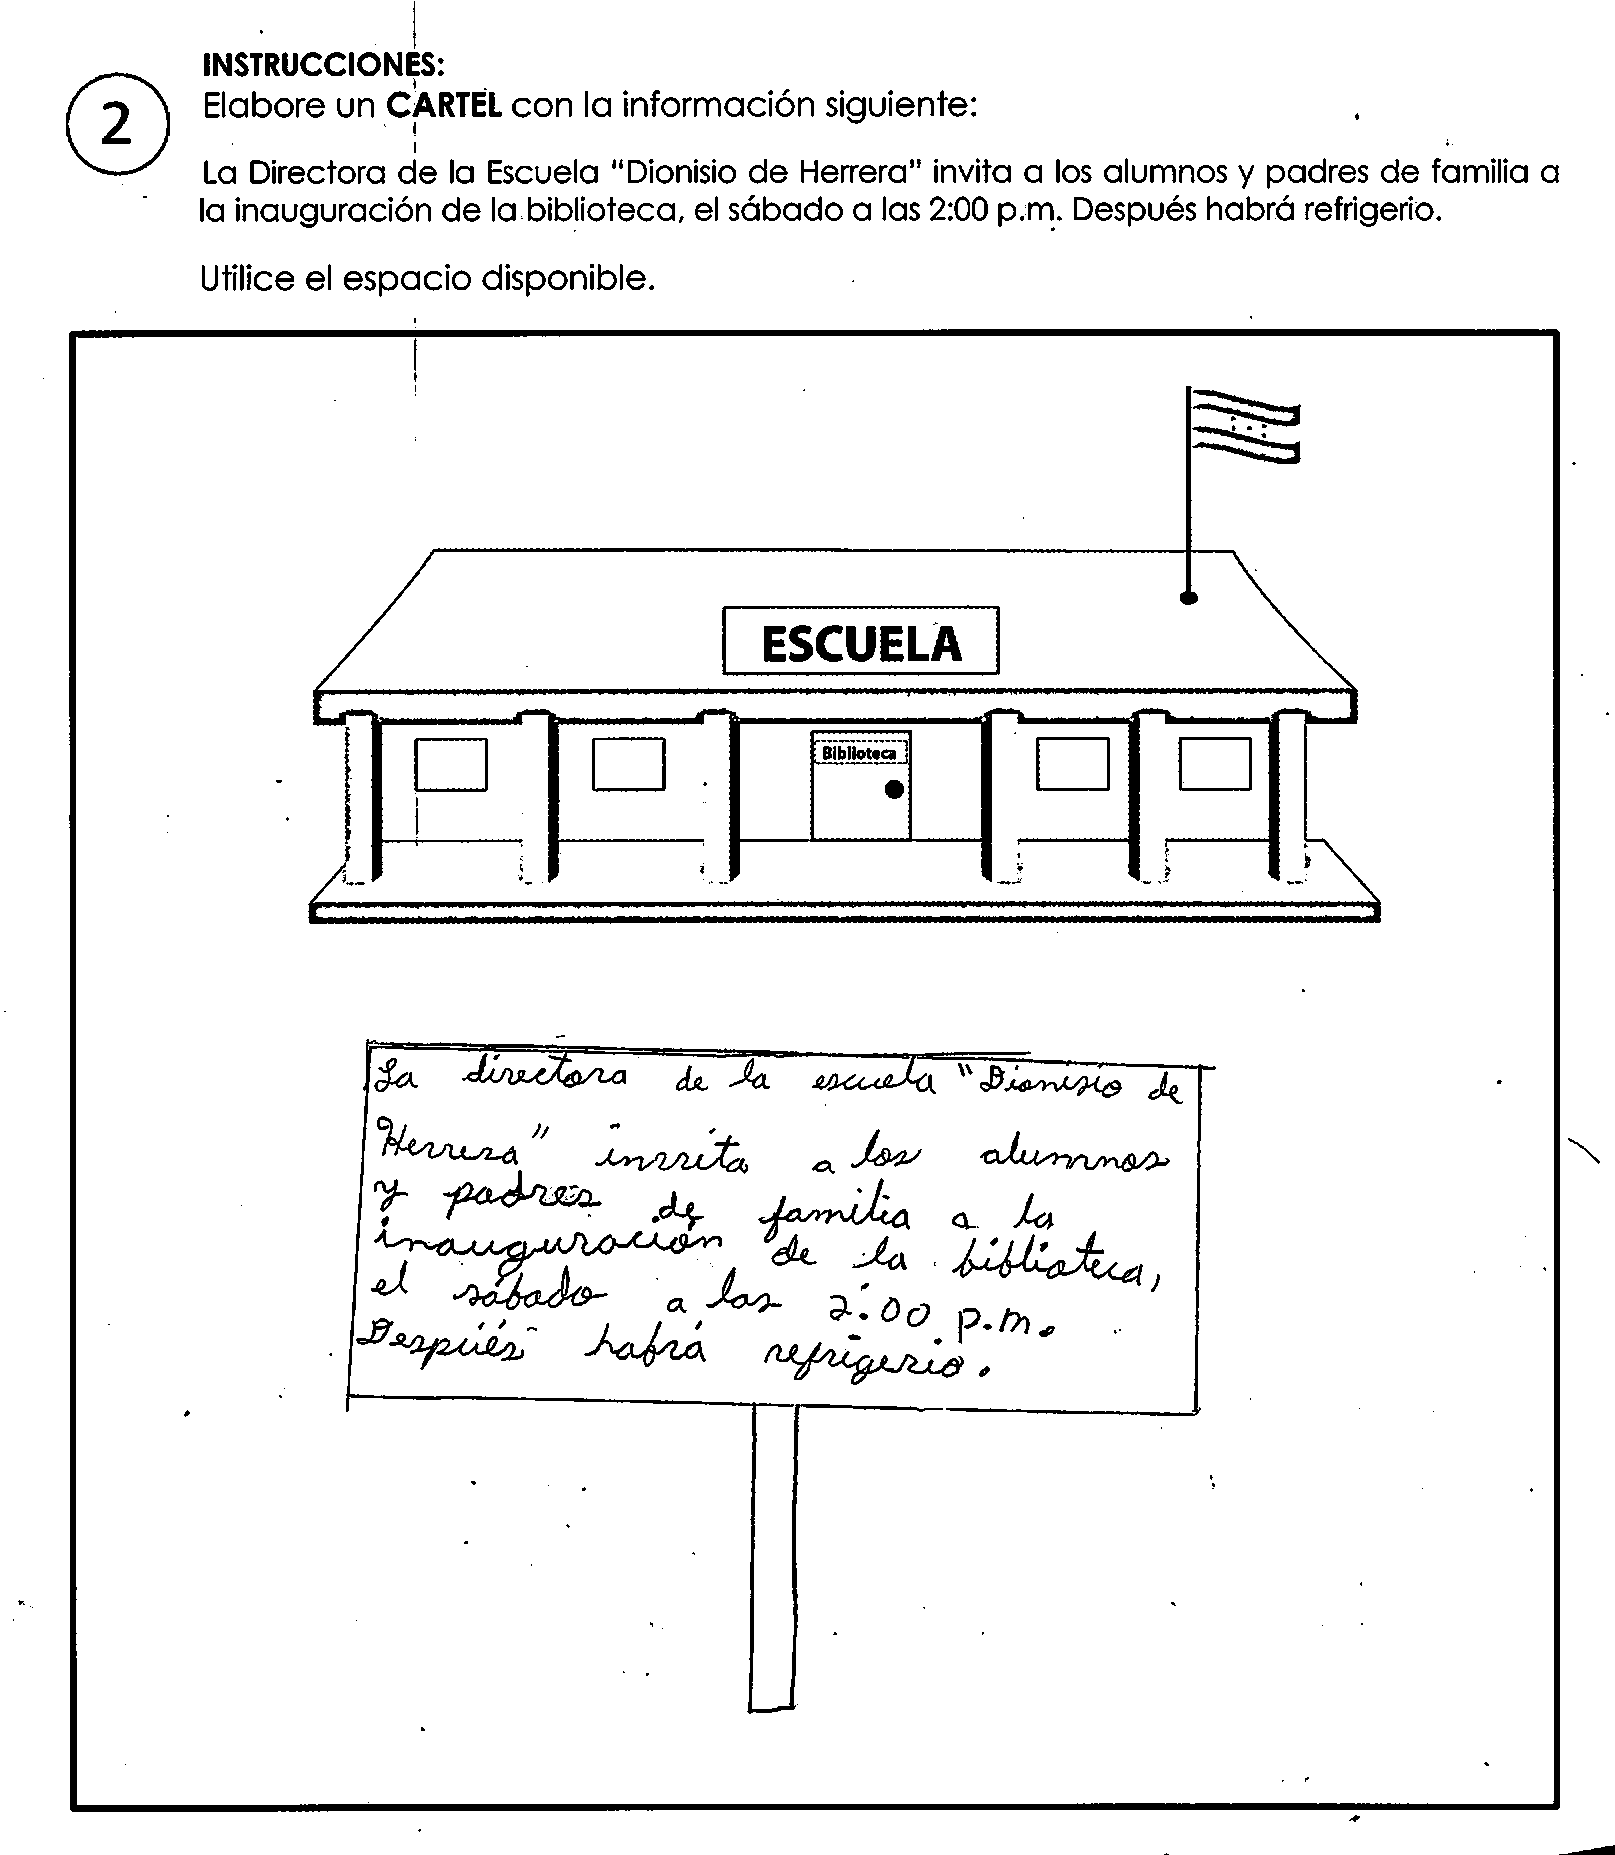 INSTRUCCIONES:
2
Elabore un CARTEL con la información siguiente:
La Directora de la Escuela "Dionisio de Herrera" invita a los alumnos y padres de familia a
la inauguración de la biblioteca, el sábado a las 2:00 p.m. Después habrá refrigerio.
Utilice el espacio disponible.
ESCUELA
Biblioteca
La directora de la escuela "Dionisio de
Herrera" invita a los alumnos
y padres de familia a la
inauguración de la biblioteca,
el sábado a las 2:00 p.m.
Después habrá refrigerio.